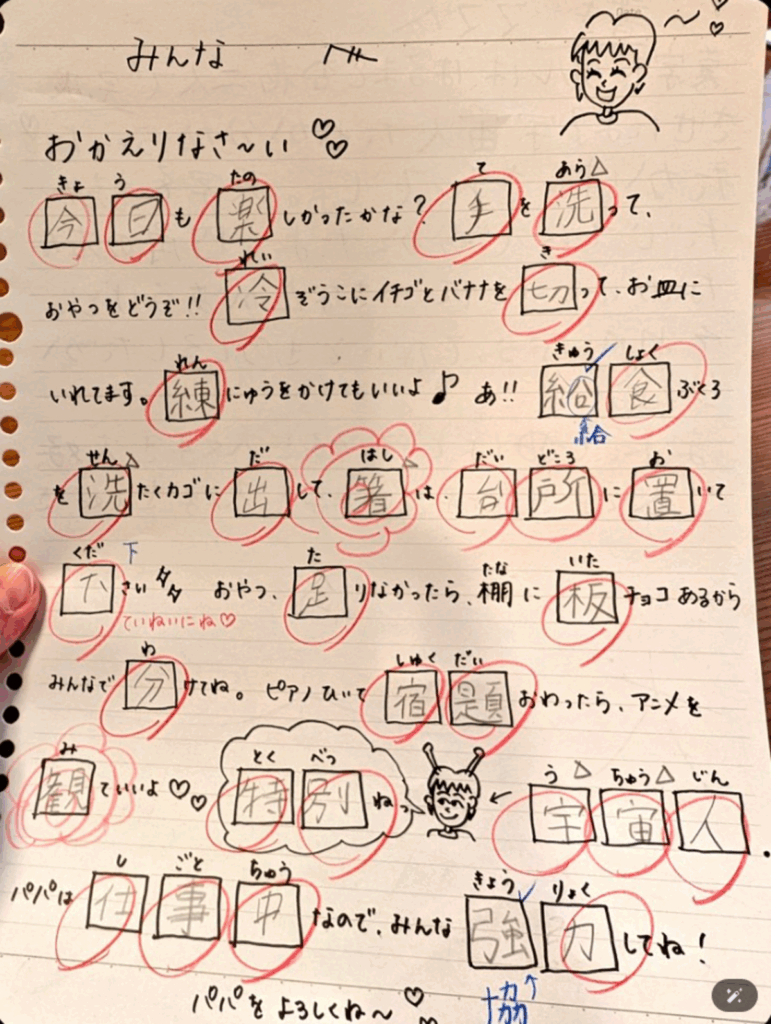 みんな へ
おかえりなさ〜い ♡♡
きょ う たの て あら△
今日も楽しかったかな? 手を洗って、
れい き
おやつをどうぞ!! 冷ぞうこにイチゴとバナナを切って、お皿に
れん きゅう✓ しょく
いれてます。練にゅうをかけてもいいよ♪ あ!! 給食ぶくろ
給
せん△ だ はし△ だい どころ お
を洗たくカゴに出して、箸は、台所に置いて
くだ 下 た たな いた
下さい おやつ、足りなかったら、棚に板チョコあるから
ていねいにね♡
わ しゅく だい
みんなで分けてね。ピアノひいて宿題おわったら、アニメを
み とく べつ う△ ちゅう△ じん
観ていいよ♡♡ 特別ねっ ← 宇宙人.
し ごと ちゅう きょう✓ りょく
パパは仕事中なので、みんな強力してね!
協
パパをよろしくね〜♡♡